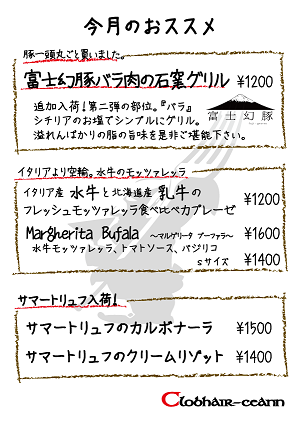 今月のおススメ
豚一頭丸ごと買いました。
富士幻豚バラ肉の石窯グリル ¥1200
追加入荷！第二弾の部位。『バラ』
シチリアのお塩でシンプルにグリル。
溢れんばかりの脂の旨味を是非ご堪能下さい。
富士幻豚
イタリアより空輸。水牛のモッツァレッラ
イタリア産 水牛と北海道産 乳牛の
フレッシュモッツァレッラ食べ比べカプレーゼ ¥1200
Margherita Bufala ～マルゲリータ ブーファラ～ ¥1600
水牛モッツァレッラ、トマトソース、バジリコ
Sサイズ ¥1400
サマートリュフ入荷！
サマートリュフのカルボナーラ ¥1500
サマートリュフのクリームリゾット ¥1400
Clobhair-ceann